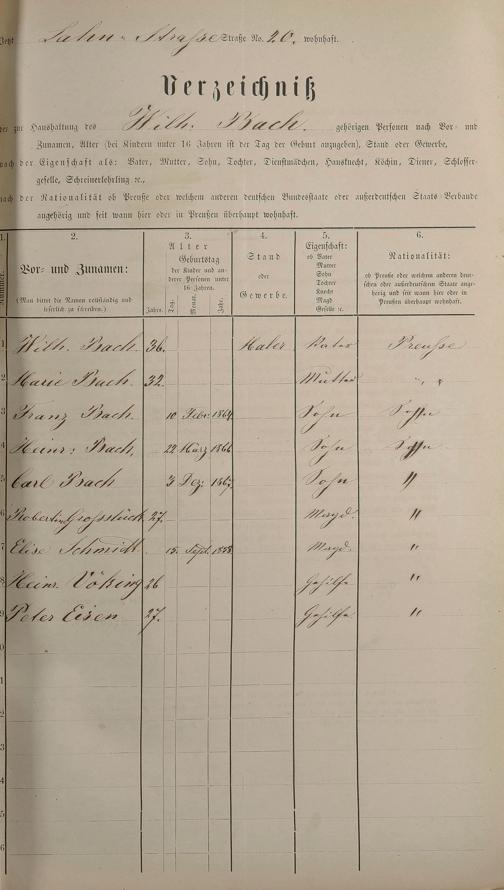 Jetzt Lahn-Straße Straße No. 20. wohnhaft.
Verzeichniß
der zur Haushaltung des Wilh. Bach. gehörigen Personen nach Vor- und
Zunamen, Alter (bei Kindern unter 16 Jahren ist der Tag der Geburt anzugeben), Stand oder Gewerbe,
nach der Eigenschaft als: Vater, Mutter, Sohn, Tochter, Dienstmädchen, Hausknecht, Köchin, Diener, Schlosser-
geselle, Schreinerlehrling ꝛc.,
nach der Nationalität ob Preuße oder welchem anderen deutschen Bundesstaate oder außerdeutschen Staats-Verbande
angehörig und seit wann hier oder in Preußen überhaupt wohnhaft.
1. 2. 3. 4. 5. 6.
Nummer.
Vor- und Zunamen:
(Man bittet die Namen vollständig und
leserlich zu schreiben.)
Alter
Geburtstag
der Kinder und an-
derer Personen unter
16 Jahren.
Jahre. Tag. Monat. Jahr.
Stand
oder
Gewerbe.
Eigenschaft:
ob Vater
Mutter
Sohn
Tochter
Knecht
Magd
Geselle ꝛc.
Nationalität:
ob Preuße oder welchem anderen deut-
schen oder außerdeutschen Staate ange-
hörig und seit wann hier oder in
Preußen überhaupt wohnhaft.
1 Wilh. Bach. 36. Maler Vater Preuße
2 Marie Bach. 32. Mutter "
3 Franz Bach. 10 Febr. 1864 Sohn
4 Heinr: Bach, 22 März 1866 Sohn
5 Carl Bach 3 Dez: 1867 Sohn "
6 Großstück 27. Magd. "
7 Elise Schmidt 15. Sept. Magd. "
8 Heinr. 26 Gehilfe "
9 Peter Eisen 27. Gehilfe "
0
1
2
3
4
5
6